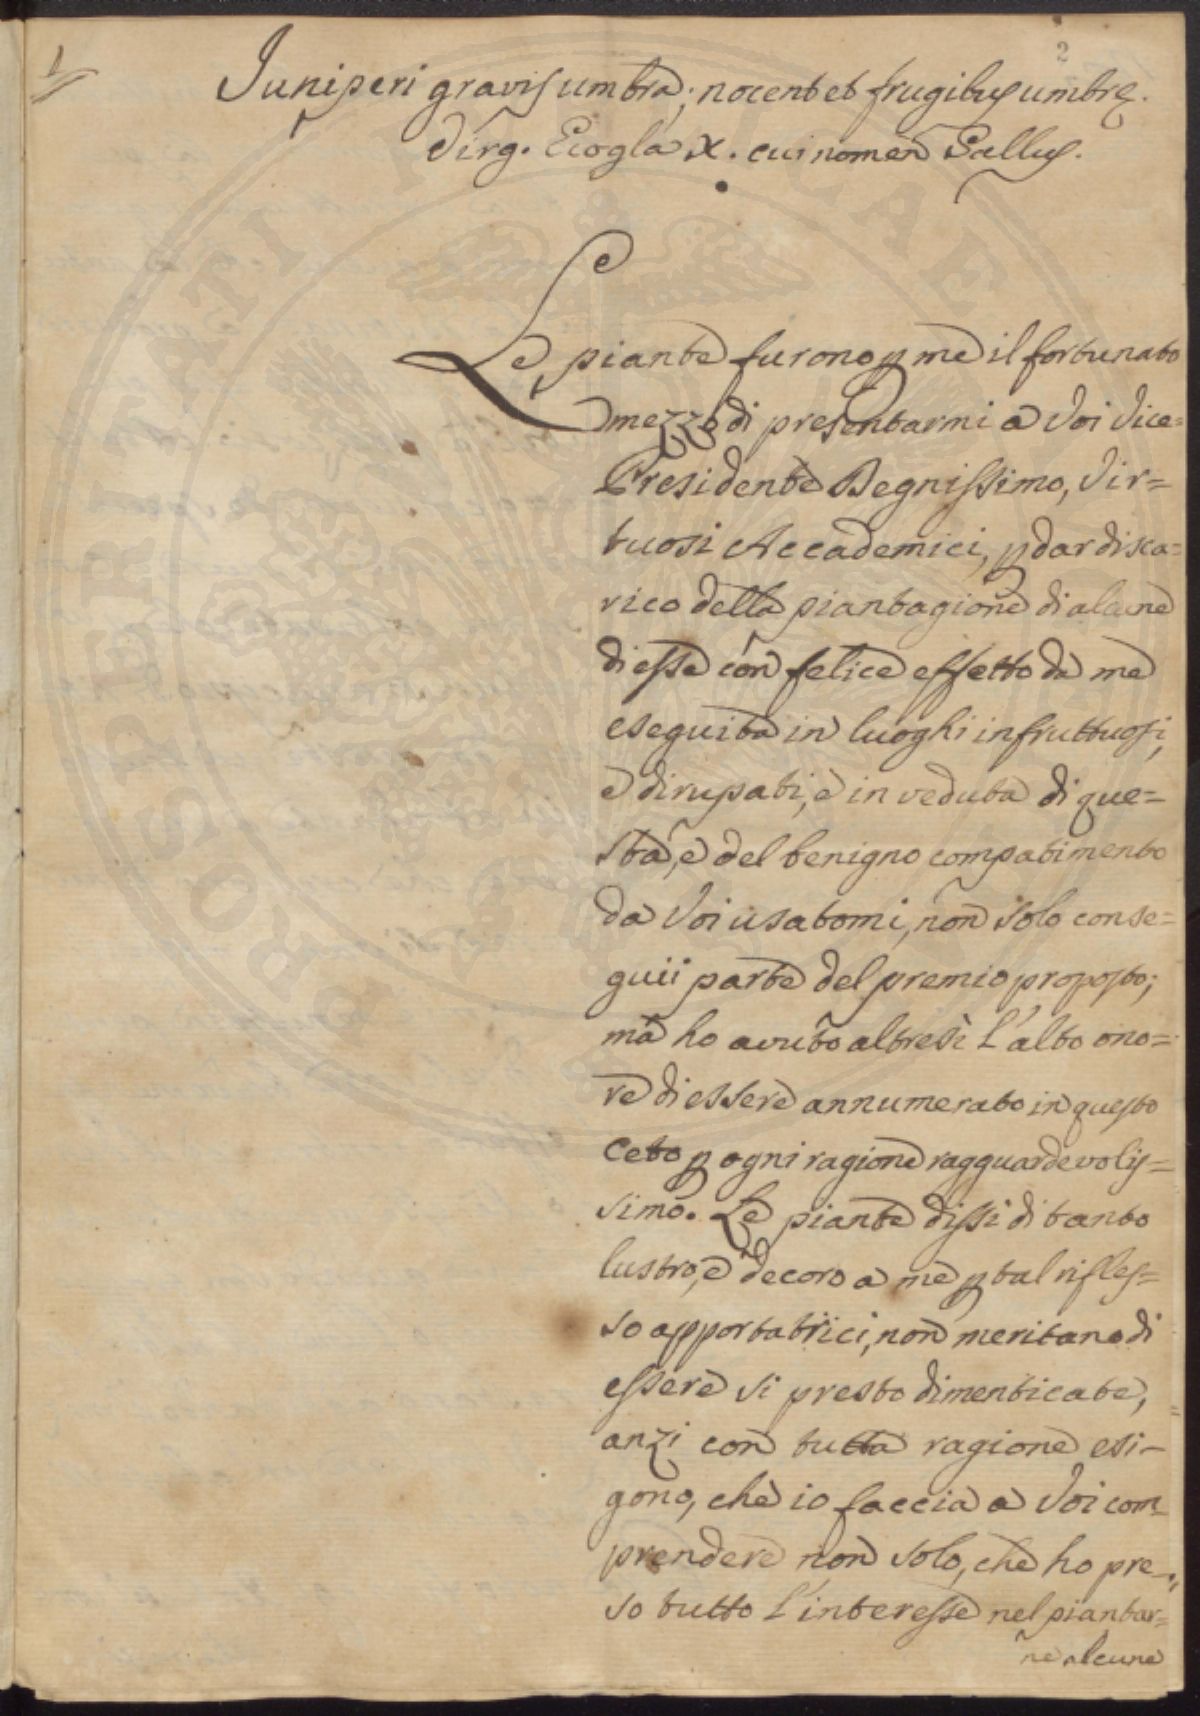 1
2
Juniperi gravis umbra; nocent et frugibus umbrę.
Virg. Ecogla X. cui nomen Gallus.
Le piante furono p me il fortunato
mezzo di presentarmi a Voi Vice=
Presidente Degnissimo, Vir=
tuosi Accademici, p dar disca=
rico della piantagione di alcune
di esse con felice effetto da me
eseguita in luoghi infruttuosi,
e dirupati, e in veduta di que=
sta, e del benigno compatimento
da Voi usatomi, non solo conse=
guii parte del premio proposto;
ma ho avuto altresì l'alto ono=
re di essere annumerato in questo
Ceto p ogni ragione ragguardevolis=
simo. Le piante dissi di tanto
lustro, e decoro a me p tal rifles=
so apportatrici, non meritano di
essere si presto dimenticate,
anzi con tutta ragione esi=
gono, che io faccia a Voi com=
prendere non solo, che ho pre=
so tutto l'interesse nel piantar=
ne alcune
PROSPERITATI PUBLICAE